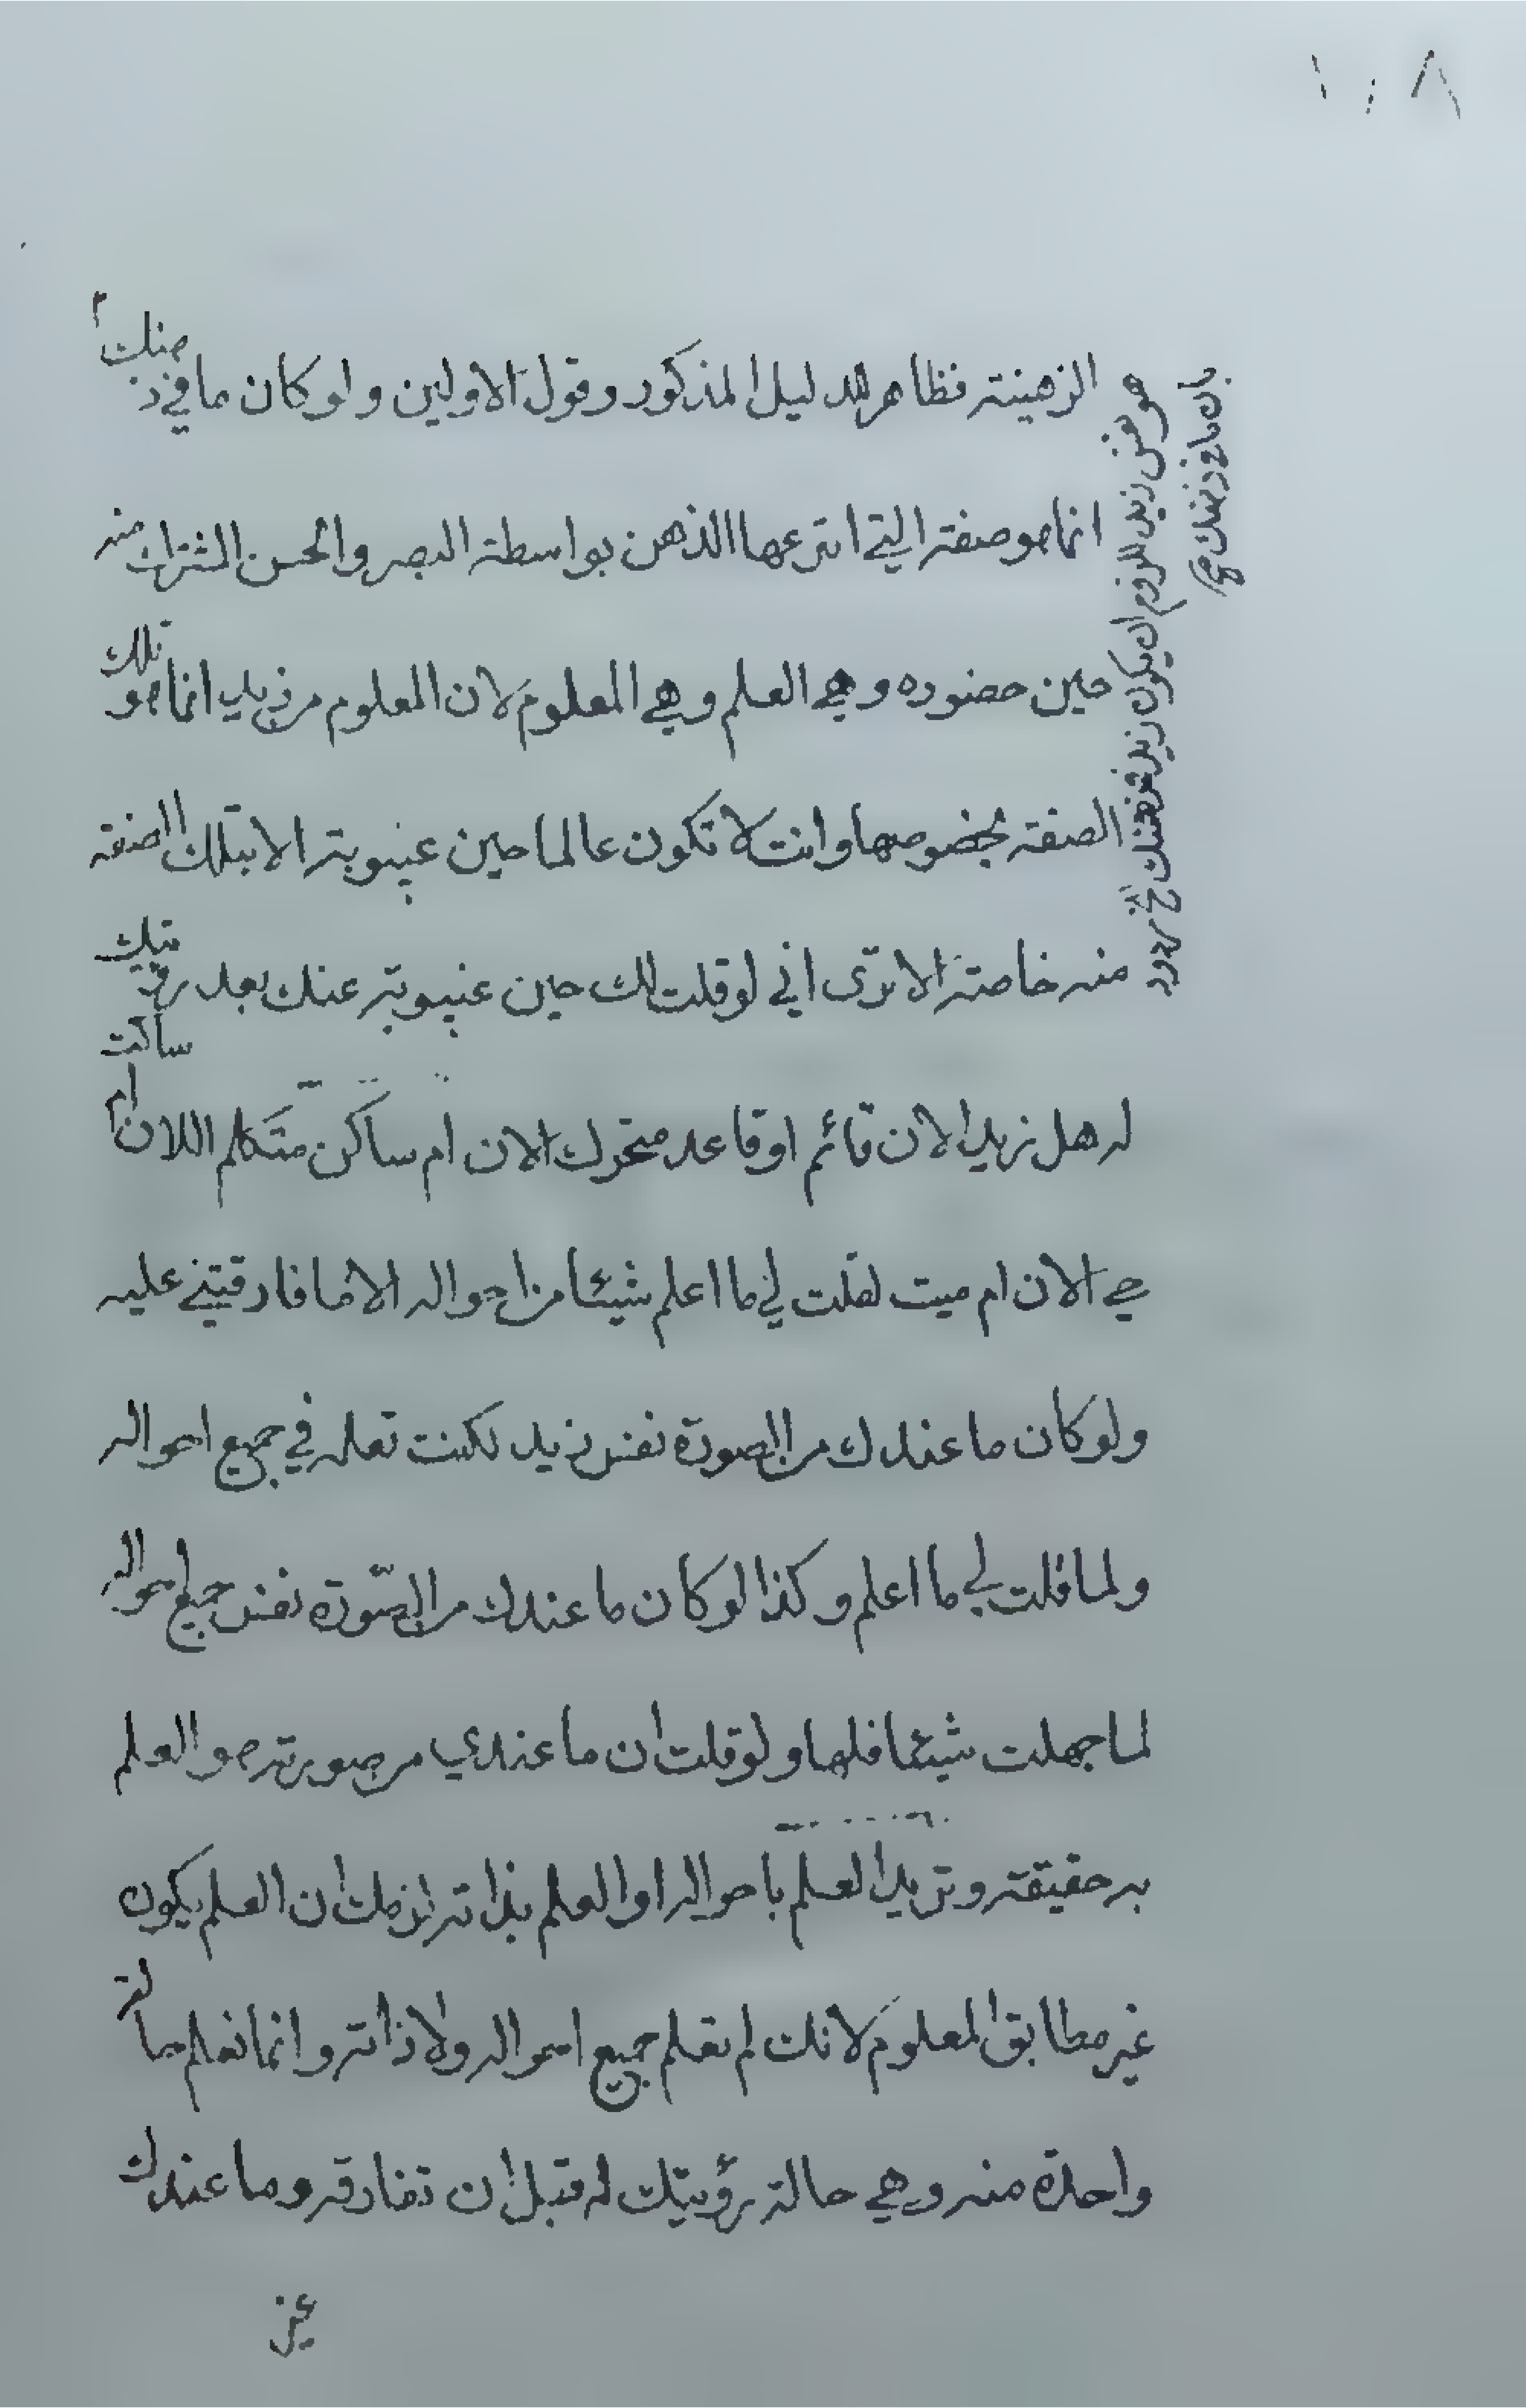 ١٠٨
الذهنية فظاهر للدليل المذكور وقول الاولين ولو كان ما في ذهنك
انما هو صفته التي انتزعها الذهن بواسطة البصر والحس المشترك منه
حين حضوره وهي العلم وهي المعلوم لان المعلوم من زيد انما هو تلك
الصفة بخصوصها وانت لا تكون عالما حين غيبوبته الا بتلك الصفة
منه خاصة الا ترى اني لو قلت لك حين غيبوبته عنك بعد رؤيتك
له هل زيد الان قائم او قاعد متحرك الان ام ساكن متكلم اللان ام ساكت
حي الان ام ميت لقلت لي ما اعلم شيئا من احواله الا ما فارقيتني عليه
ولو كان ما عندك من الصورة نفس زيد لكنت تعلمه في جميع احواله
ولما قلت لي ما اعلم وكذا لو كان ما عندك من الصّورة نفس جميع احواله
لما جهلت شيئا فلها ولو قلت ان ما عندي من صورته هو العلم
به حقيقة وتريد العلم باحواله او العلم بذاته لزمك ان العلم يكون
غير مطابق المعلوم لانك لم تعلم جميع احواله ولا ذاته وانما تعلم حالة
واحدة منه وهي حالة رؤيتك له قبل ان تفارقه وما عندك
هو نفس زيد للزم ان يكون زيد في ذهنك
بان ما في ذهنك